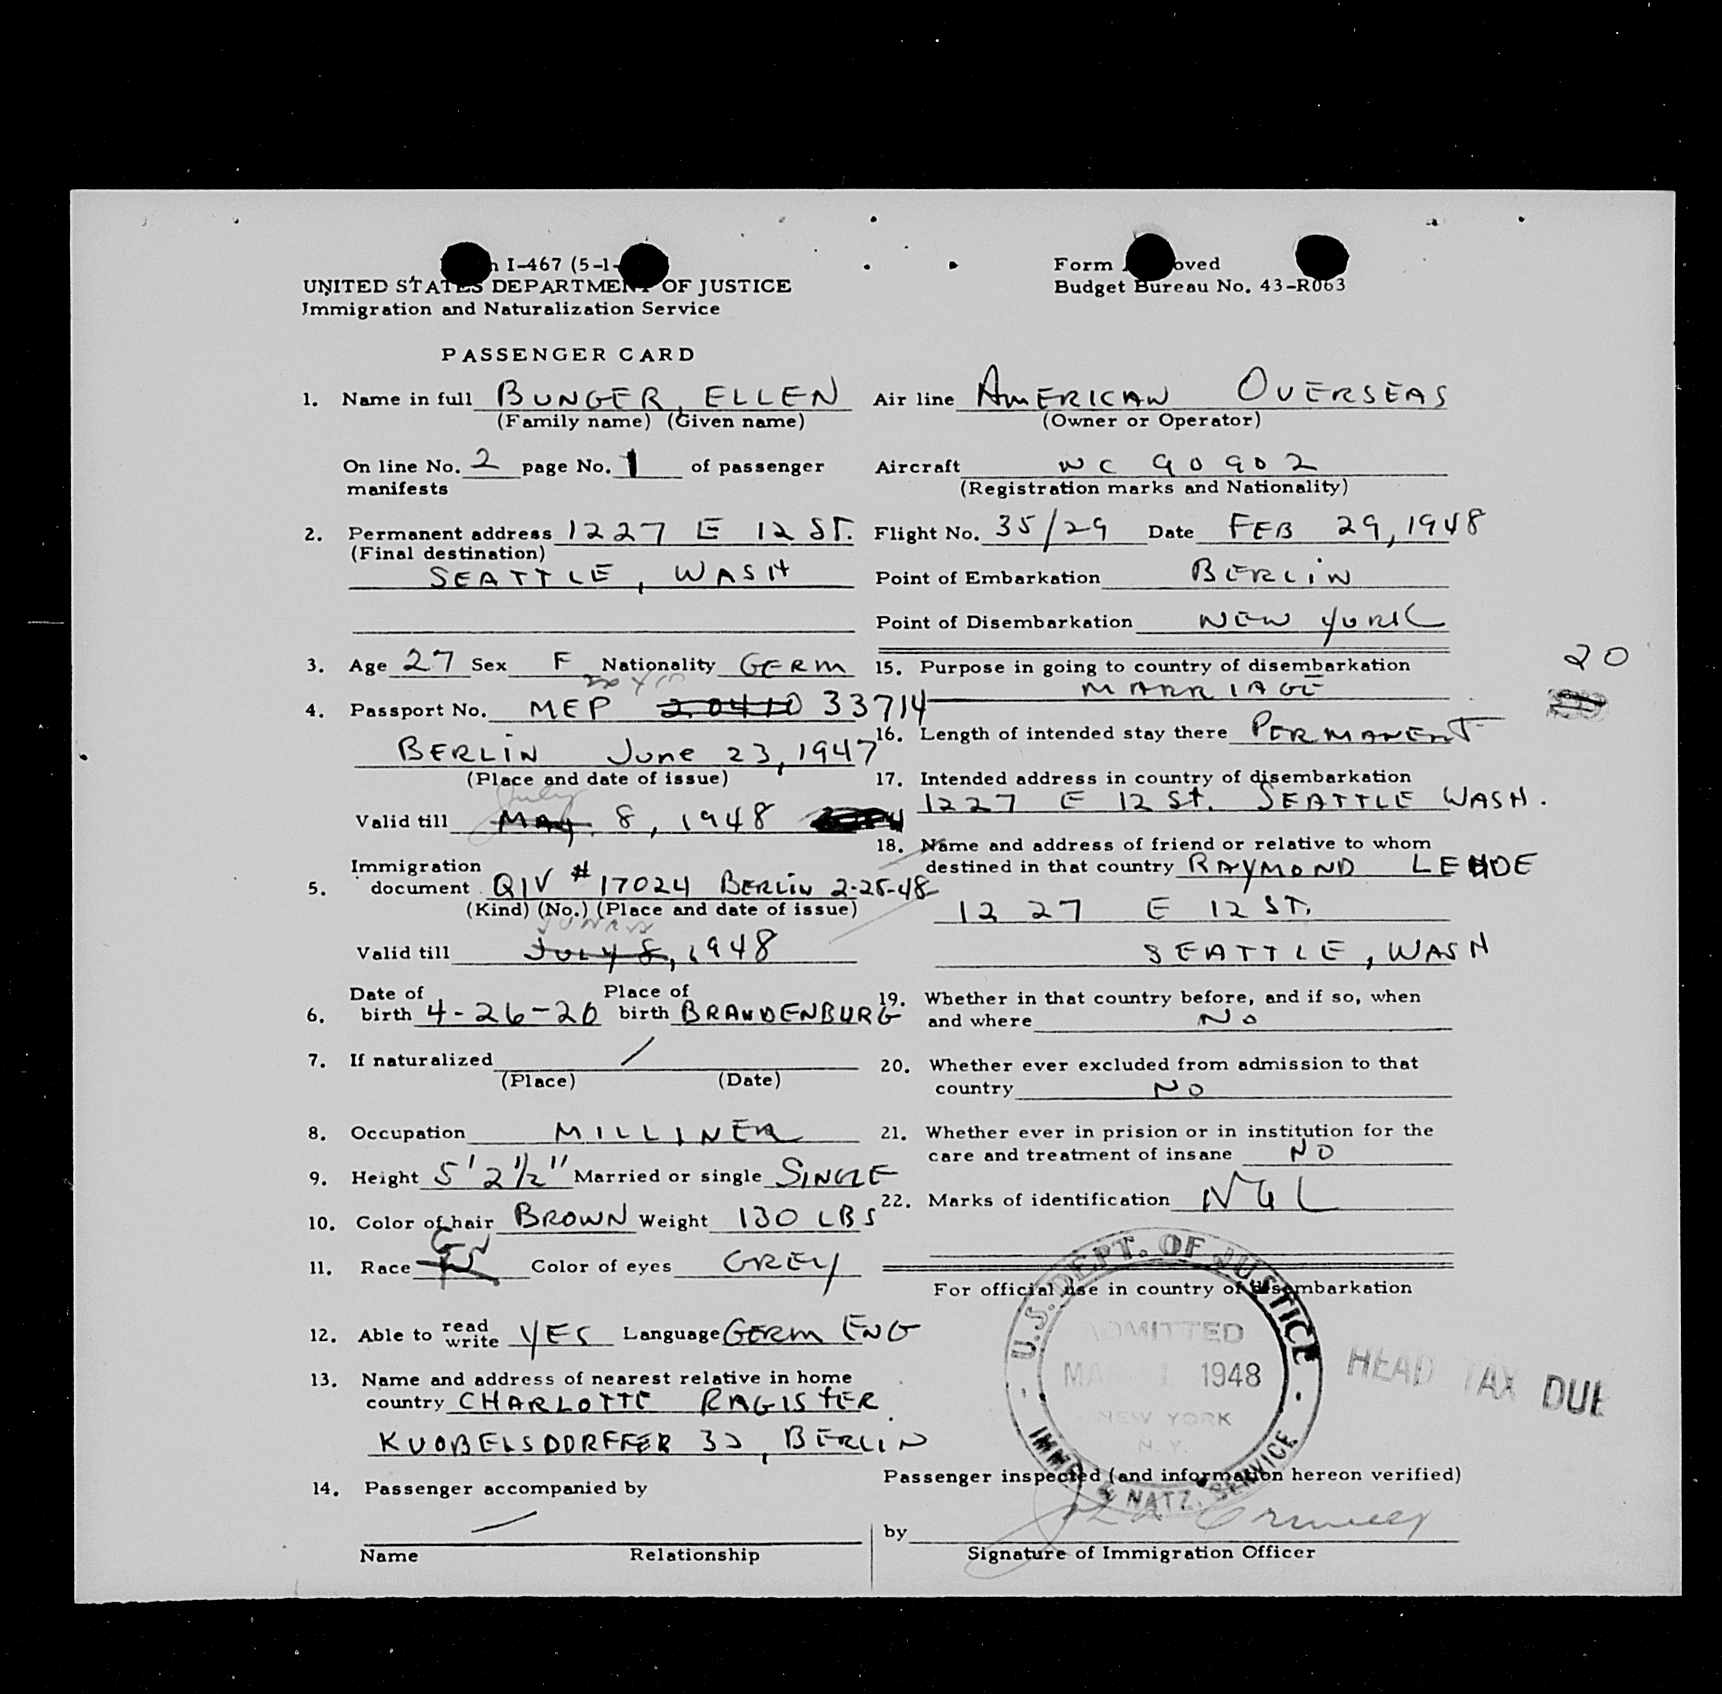 I-467 (5-1-
UNITED STATES DEPARTMENT OF JUSTICE
Immigration and Naturalization Service
Form Approved
Budget Bureau No. 43-R063
PASSENGER CARD
1. Name in full BUNGER, ELLEN
(Family name) (Given name)
On line No. 2 page No. 1 of passenger
manifests
2. Permanent address 1227 E 12 ST.
(Final destination)
SEATTLE, WASH
3. Age 27 Sex F Nationality GERM
4. Passport No. MEP 20410 33714
BERLIN June 23, 1947
(Place and date of issue)
July
Valid till MAY 8, 1948
Immigration
5. document QIV # 17024 BERLIN 2-25-48
(Kind) (No.) (Place and date of issue)
Valid till JULY 8, 1948
Date of Place of
6. birth 4-26-20 birth BRANDENBURG
7. If naturalized /
(Place) (Date)
8. Occupation MILLINER
9. Height 5' 2 1/2" Married or single SINGLE
10. Color of hair BROWN Weight 130 LBS
11. Race Color of eyes GREY
12. Able to read write YES Language GERM ENG
13. Name and address of nearest relative in home
country CHARLOTTE RAGISTER
KUOBELSDORFFER 32, BERLIN
14. Passenger accompanied by
Name Relationship
Air line AMERICAN OVERSEAS
(Owner or Operator)
Aircraft NC 90902
(Registration marks and Nationality)
Flight No. 35/29 Date FEB 29, 1948
Point of Embarkation BERLIN
Point of Disembarkation NEW YORK
15. Purpose in going to country of disembarkation
MARRIAGE
20
16. Length of intended stay there PERMANENT
17. Intended address in country of disembarkation
1227 E 12 St. SEATTLE WASH.
18. Name and address of friend or relative to whom
destined in that country RAYMOND LEHDE
1227 E 12 ST.
SEATTLE, WASH
19. Whether in that country before, and if so, when
and where NO
20. Whether ever excluded from admission to that
country NO
21. Whether ever in prision or in institution for the
care and treatment of insane NO
22. Marks of identification NIL
For official use in country of disembarkation
U.S. DEPT. OF JUSTICE
ADMITTED
MAR 1 1948
NEW YORK
N.Y.
IMMG. & NATZ. SERVICE
HEAD TAX DUE
Passenger inspected (and information hereon verified)
by
Signature of Immigration Officer